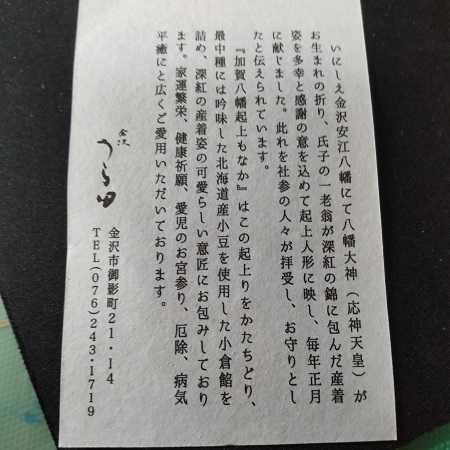 いにしえ金沢安江八幡にて八幡大神（応神天皇）が
お生まれの折り、氏子の一老翁が深紅の錦に包んだ産着
姿を多幸と感謝の意を込めて起上人形に映し、毎年正月
に献じました。此れを社参の人々が拝受し、お守りとし
たと伝えられています。
『加賀八幡起上もなか』はこの起上りをかたちどり、
最中種には吟味した北海道産小豆を使用した小倉餡を
詰め、深紅の産着姿の可愛らしい意匠にお包みしており
ます。家運繁栄、健康祈願、愛児のお宮参り、厄除、病気
平癒にと広くご愛用いただいております。
金沢
うら田
金沢市御影町21・14
TEL(076)243・1719